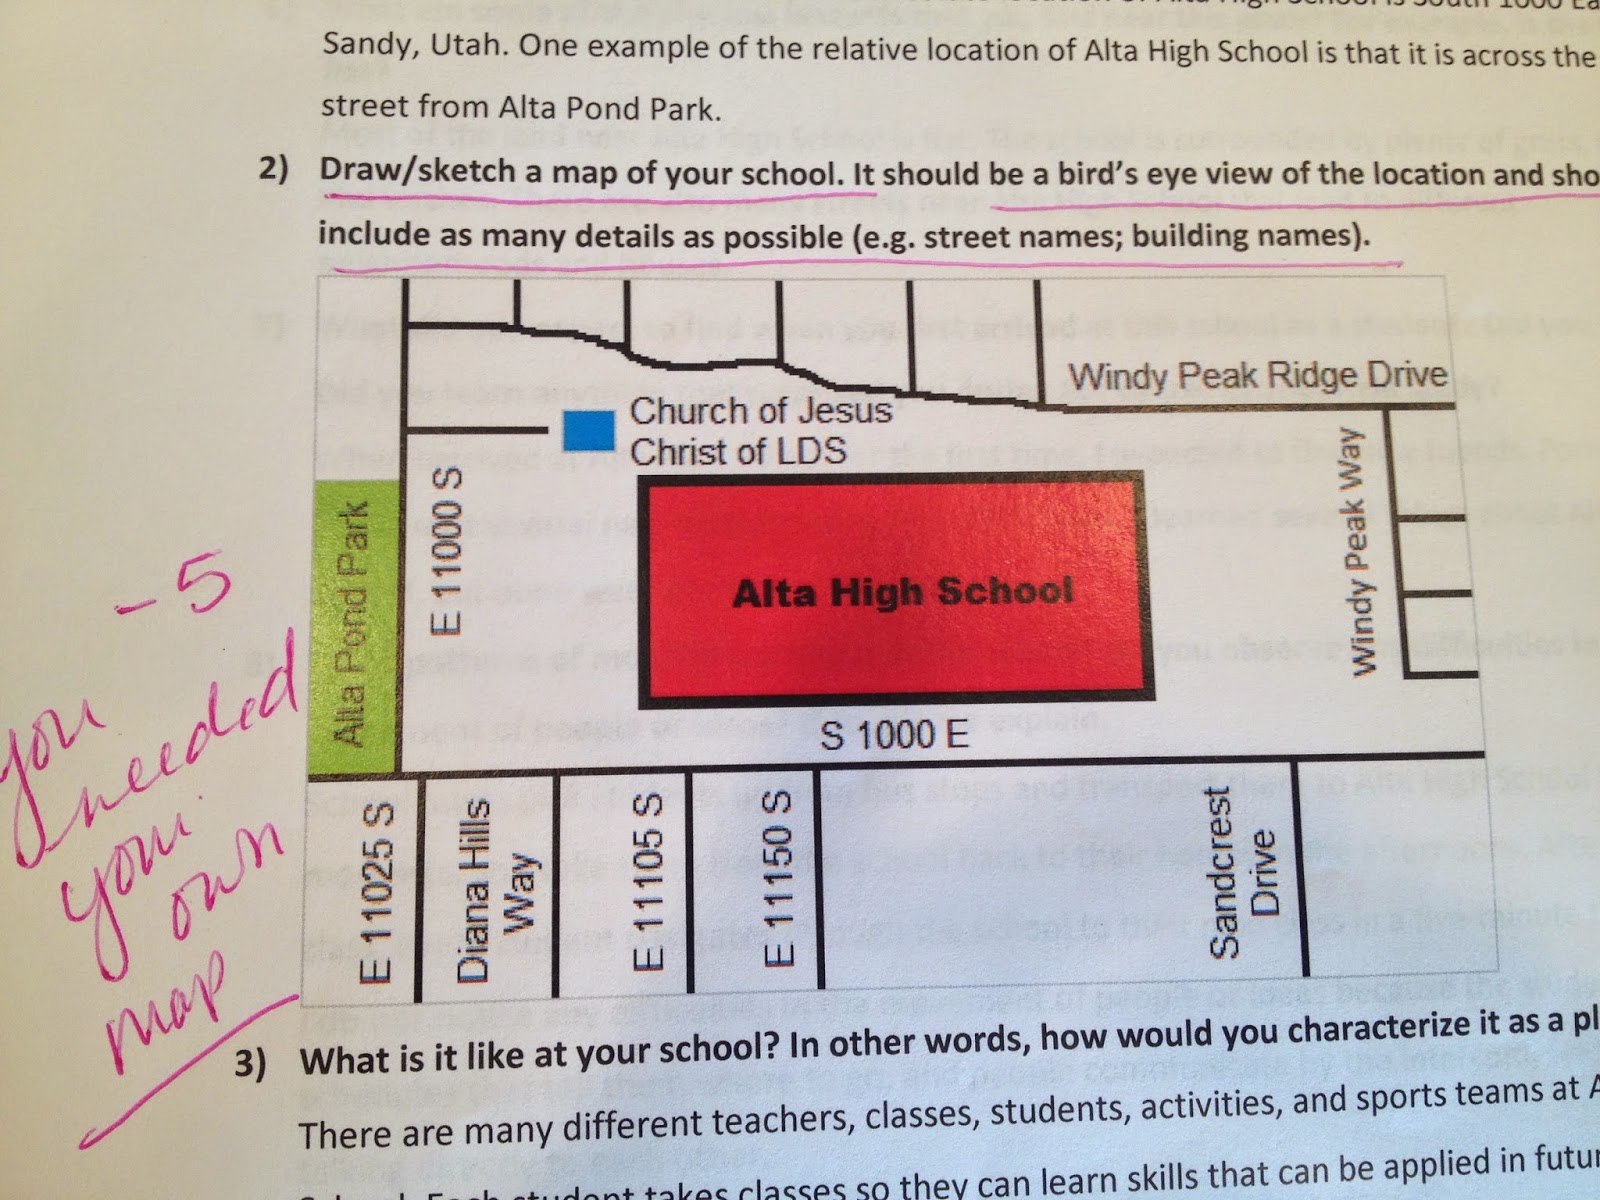 South 1000 Ea
Sandy, Utah. One example of the relative location of Alta High School is that it is across the
street from Alta Pond Park.
2) Draw/sketch a map of your school. It should be a bird's eye view of the location and sho
include as many details as possible (e.g. street names; building names).
Windy Peak Ridge Drive
Church of Jesus
Christ of LDS
Windy Peak Way
E 11000 S
Alta Pond Park
Alta High School
S 1000 E
E 11025 S
Diana Hills
Way
E 11105 S
E 11150 S
Sandcrest
Drive
-5
you
needed
your
own
map
3) What is it like at your school? In other words, how would you characterize it as a pl
There are many different teachers, classes, students, activities, and sports teams at A
School. Each student takes classes so they can learn skills that can be applied in futur